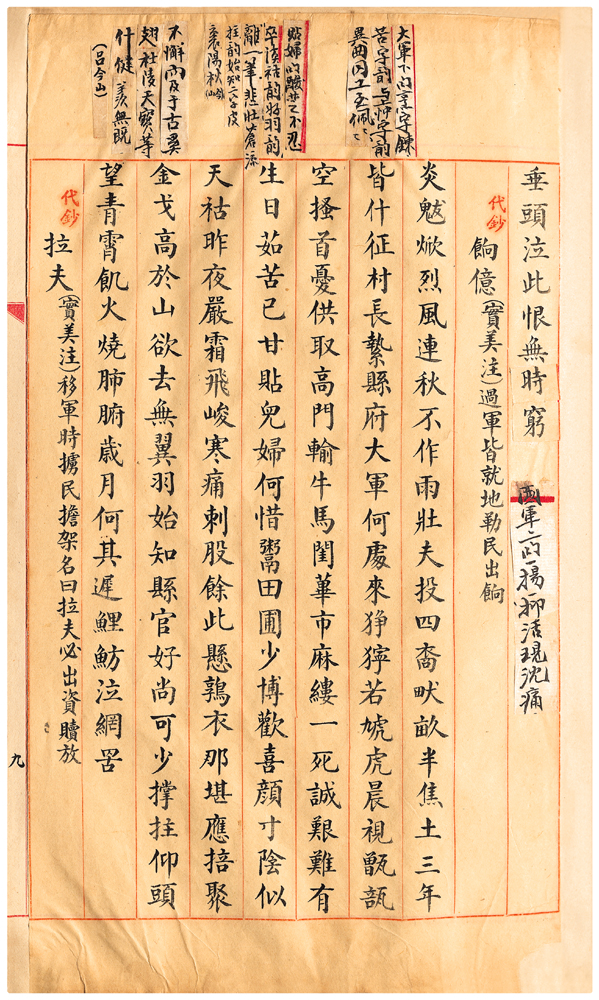 垂頭泣此恨無時窮
代鈔
餉億(實美注)過軍皆就地勒民出餉
炎魃焮烈風連秋不作雨壯夫投四裔畎畝半焦土三年
皆什征村長縶縣府大軍何處來猙獰若虓虎晨視甑瓿
空搔首憂供取高門輸牛馬閨蓽市麻縷一死誠艱難有
生日茹苦已甘貼兒婦何惜鬻田圃少博歡喜顏寸陰似
天祜昨夜嚴霜飛峻寒痛刺股餘此懸鶉衣那堪應掊聚
金戈高於山欲去無翼羽始知縣官好尚可少撐拄仰頭
望青霄飢火燒肺腑歲月何其遲鯉魴泣網罟
代鈔
拉夫(實美注)移軍時擄民擔架名曰拉夫必出資贖放
大軍下的字鍊
苦字韵
貼婦的酸楚不忍
卒讀祜韵好羽韵
離一筆悲壯蒼涼
拄韵始知二字皮
裏陽秋
不懈而及于古奚
翅杜陵天寶等
什健羨無既
(呂今山)
活現沈痛
九